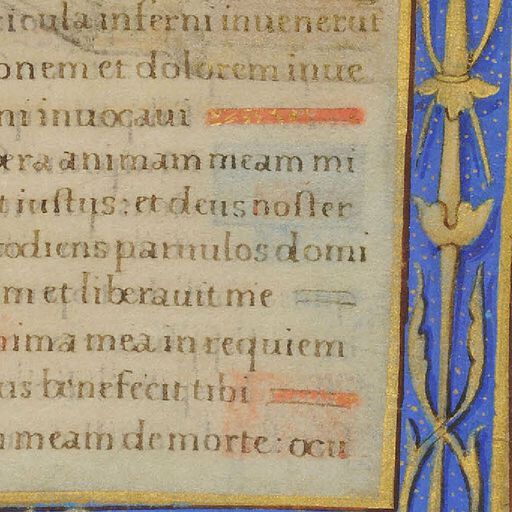 icula inferni inuenerut
onem et dolorem inue
ni inuocaui
era animam meam mi
t iustus: et deus noster
odiens paruulos domi
m et liberauit me
nima mea in requiem
us benefecit tibi
meam de morte: ocu